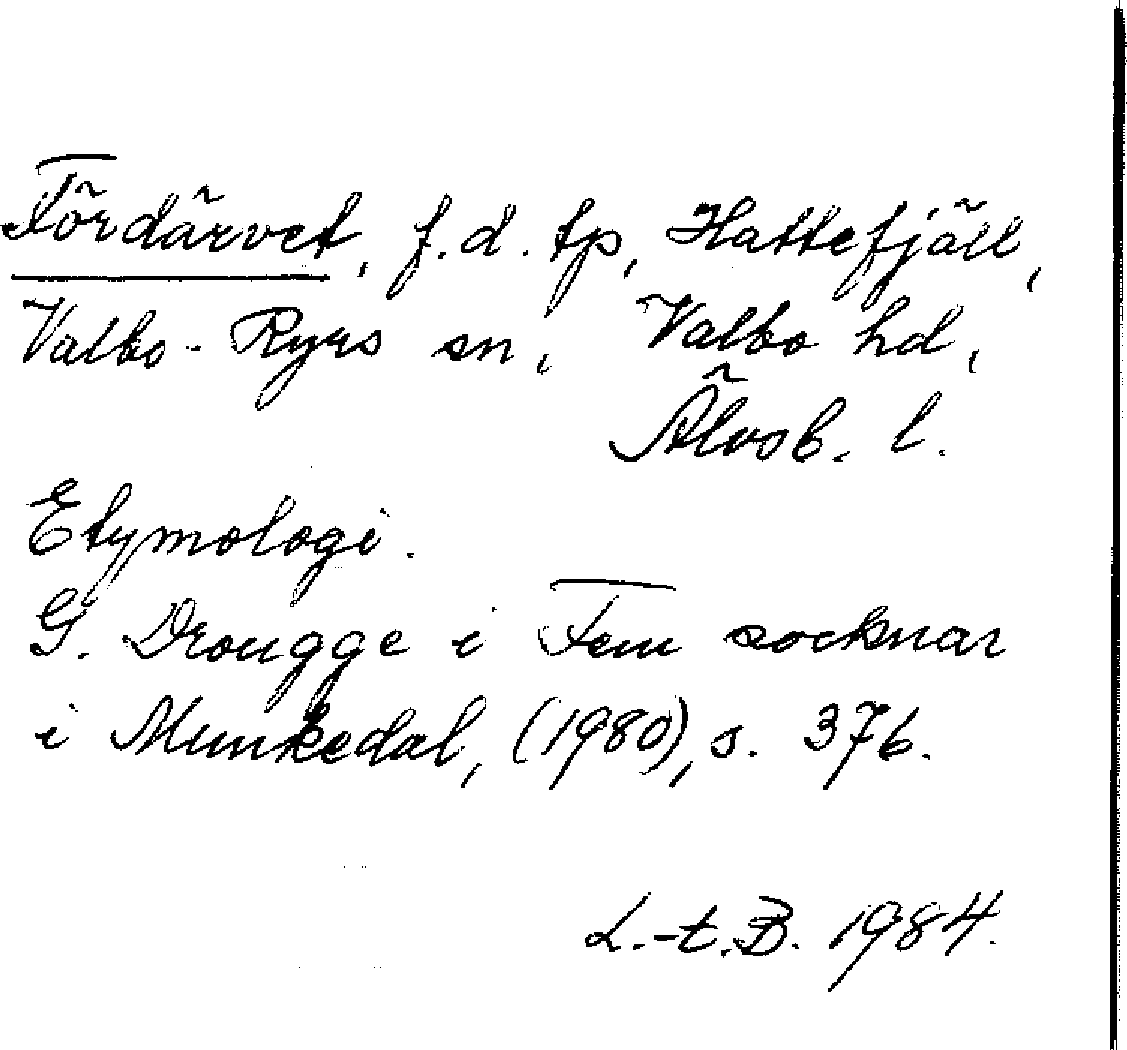 Fördärvet, f.d. tp, Hattefjäll,
Valbo-Ryrs sn, Valbo hd,
Älvsb. l.
Etymologi.
G. Drougge i Fem socknar
i Munkedal, (1980), s. 376.
L.-t. B. 1984.